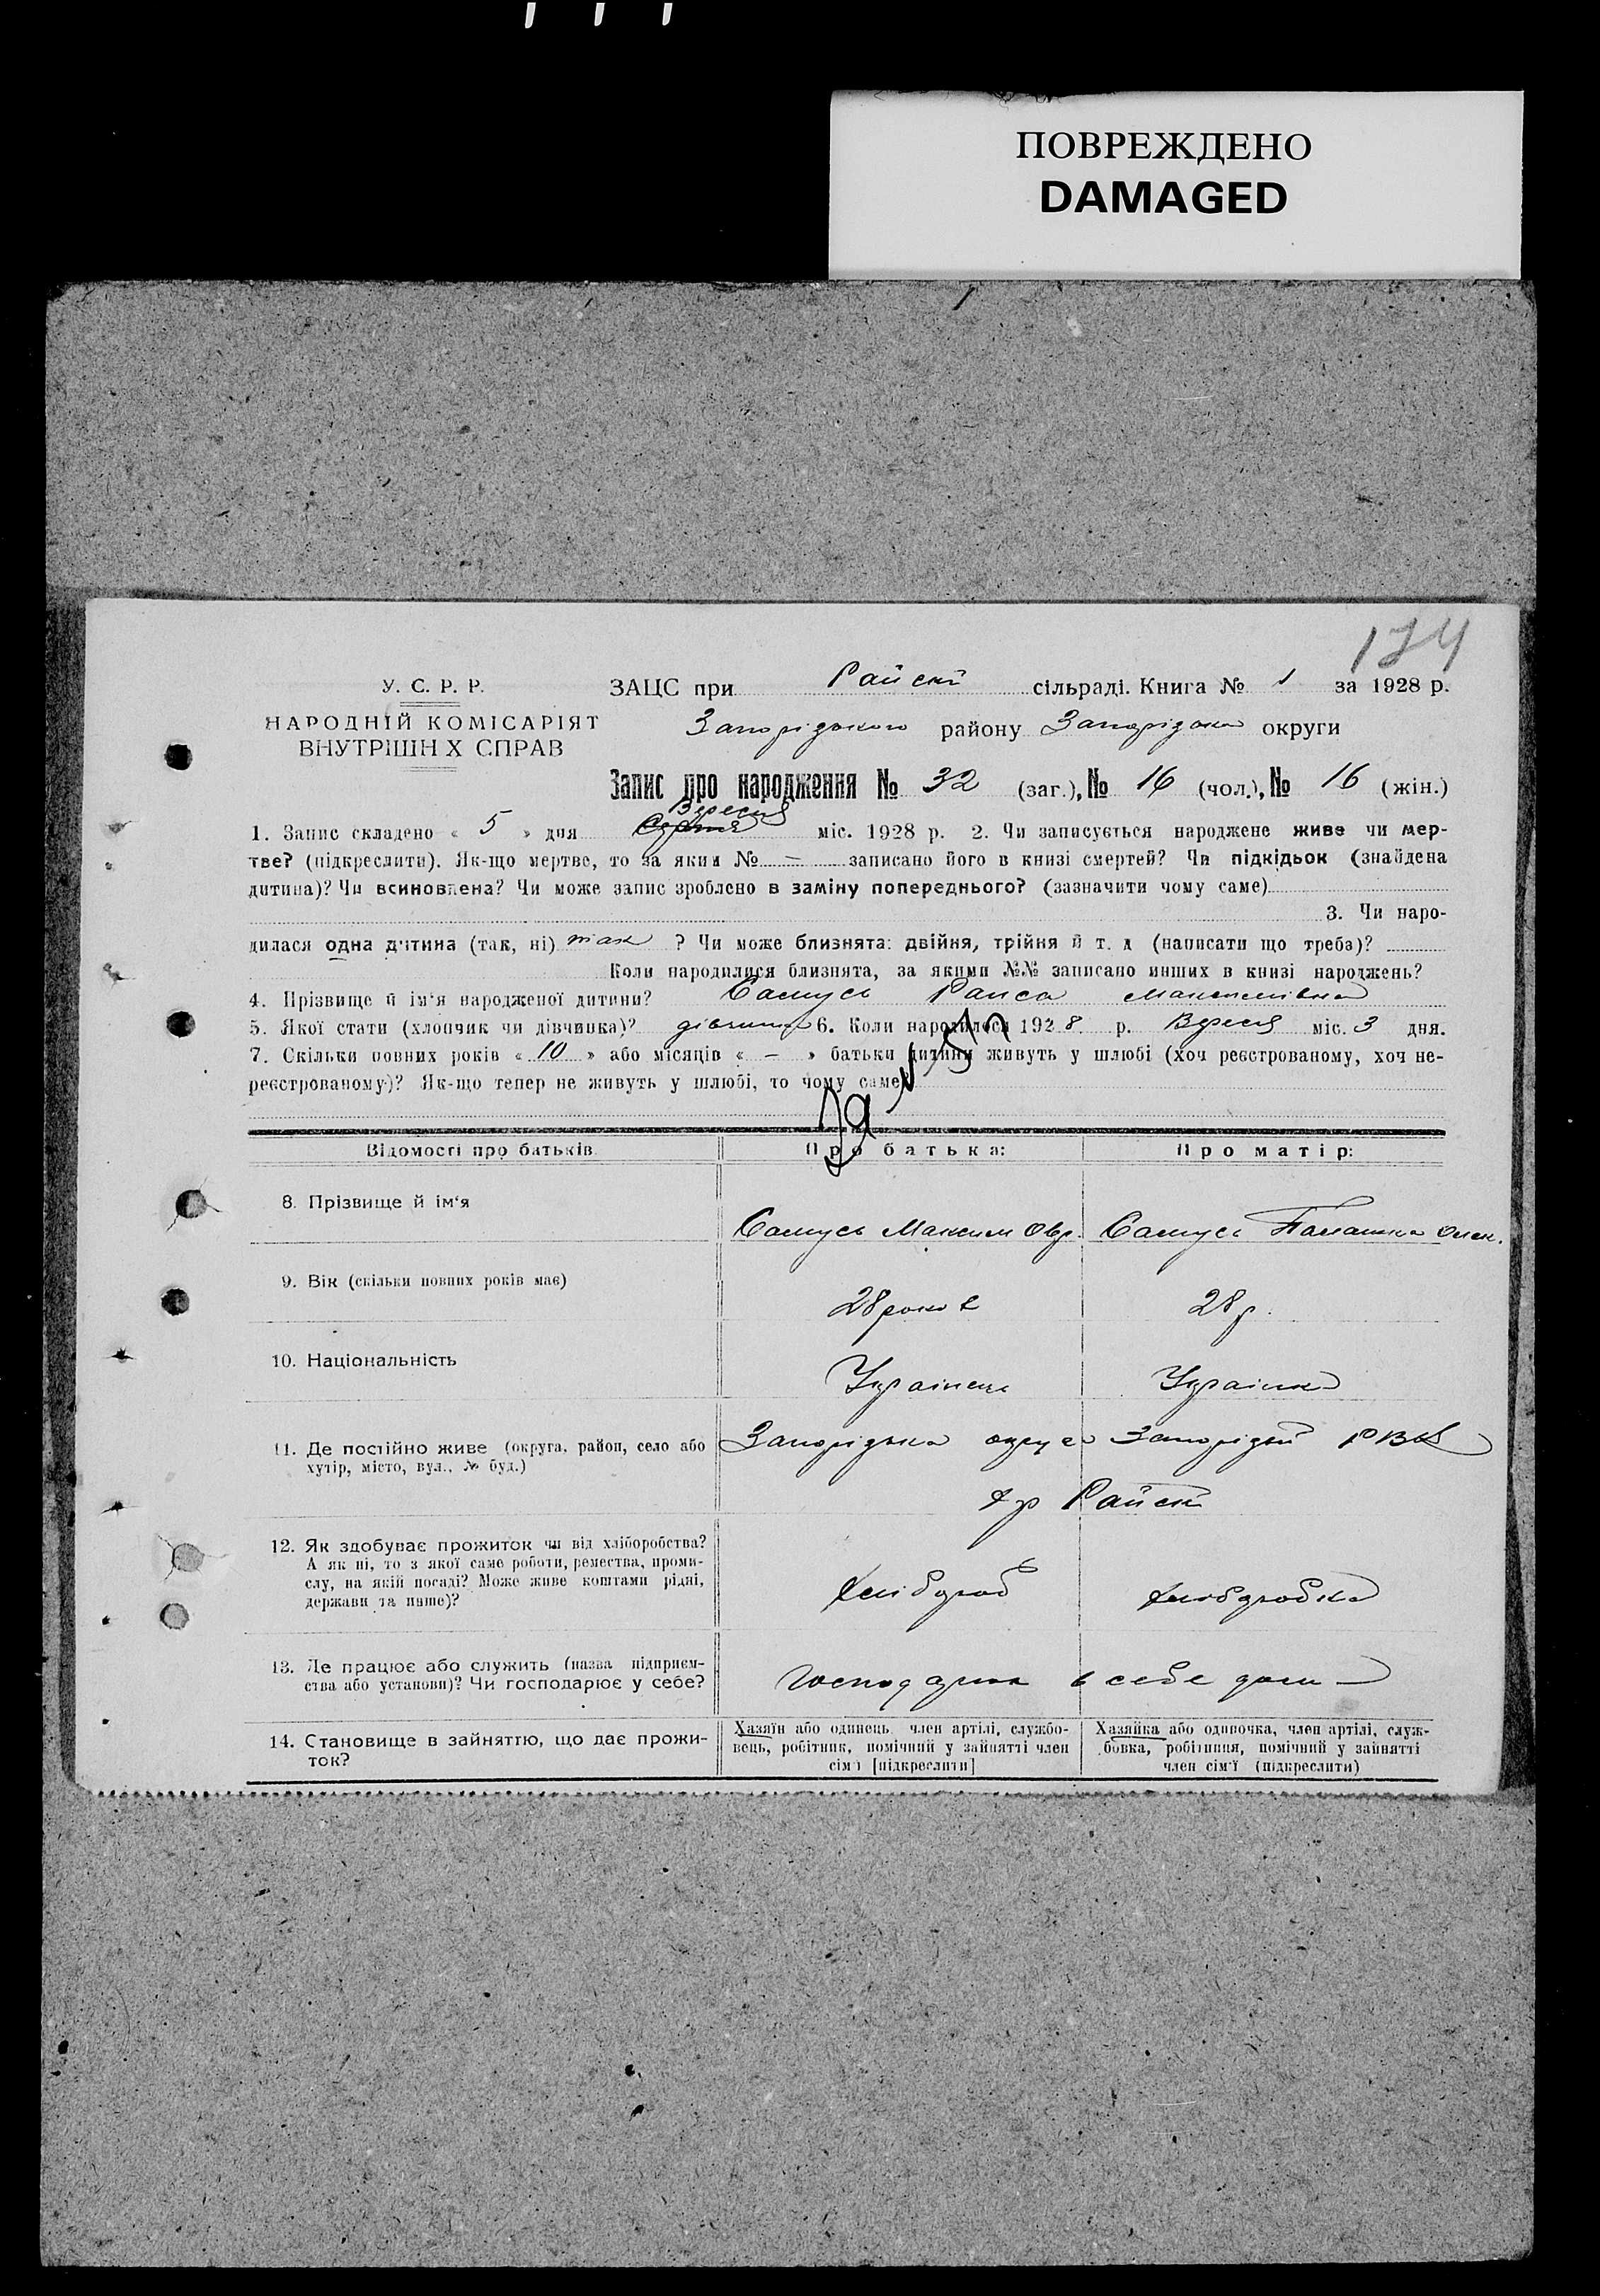 ПОВРЕЖДЕНО
DAMAGED
У. С. Р. Р.
НАРОДНІЙ КОМІСАРІЯТ
ВНУТРІШН Х СПРАВ
ЗАЦС при Райскій сільраді. Книга № 1 за 1928 р.
району округи
Запис про народження № 32 (заг.), № 16 (чол.), № 16 (жін.)
1. Запис складено « 5 » дня Вересня міс. 1928 р. 2. Чи записується народжене живе чи мер-
тве? (підкреслити). Як-що мертве, то за яким № — записано його в книзі смертей? Чи підкідьок (знайдена
дитина)? Чи всиновлена? Чи може запис зроблено в заміну попереднього? (зазначити чому саме)
3. Чи наро-
дилася одна дитина (так, ні) так ? Чи може близнята: двійня, трійня й т. д (написати що треба)?
Коли народилися близнята, за якими №№ записано инших в книзі народжень?
4. Прізвище й ім'я народженої дитини? Самусь Раиса Максимівна
5. Якої стати (хлопчик чи дівчинка)? дівчина 6. Коли народилося 1928 р. Вересня міс. 3 дня.
7. Скільки повних років « 10 » або місяців « – » батьки дитини живуть у шлюбі (хоч реєстрованому, хоч не-
реєстрованому)? Як-що тепер не живуть у шлюбі, то чому саме?
Відомості про батьків Про батька: Про матір:
8. Прізвище й ім'я
Самусь Максим Овр. Самусь
9. Вік (скільки повних років має)
28 років 28 р.
10. Національність
Українець Українка
11. Де постійно живе (округа, район, село або Запорізька округа РВК
хутір, місто, вул., № буд.)
Райскій
12. Як здобуває прожиток чи від хліборобства?
А як ні, то з якої саме роботи, ремества, проми-
слу, на якій посаді? Може живе коштами рідні,
держави та инше)?
Хлібороб Хліборобка
13. Де працює або служить (назва підприєм-
ства або установи)? Чи господарює у себе?
в себе дома
14. Становище в зайняттю, що дає прожи-
ток?
Хазяїн або одинець, член артілі, службо-
вець, робітник, помічний у зайнятті член
сім'ї [підкреслити]
Хазяйка або одиночка, член артілі, служ-
бовка, робітниця, помічний у зайнятті
член сім'ї (підкреслити)